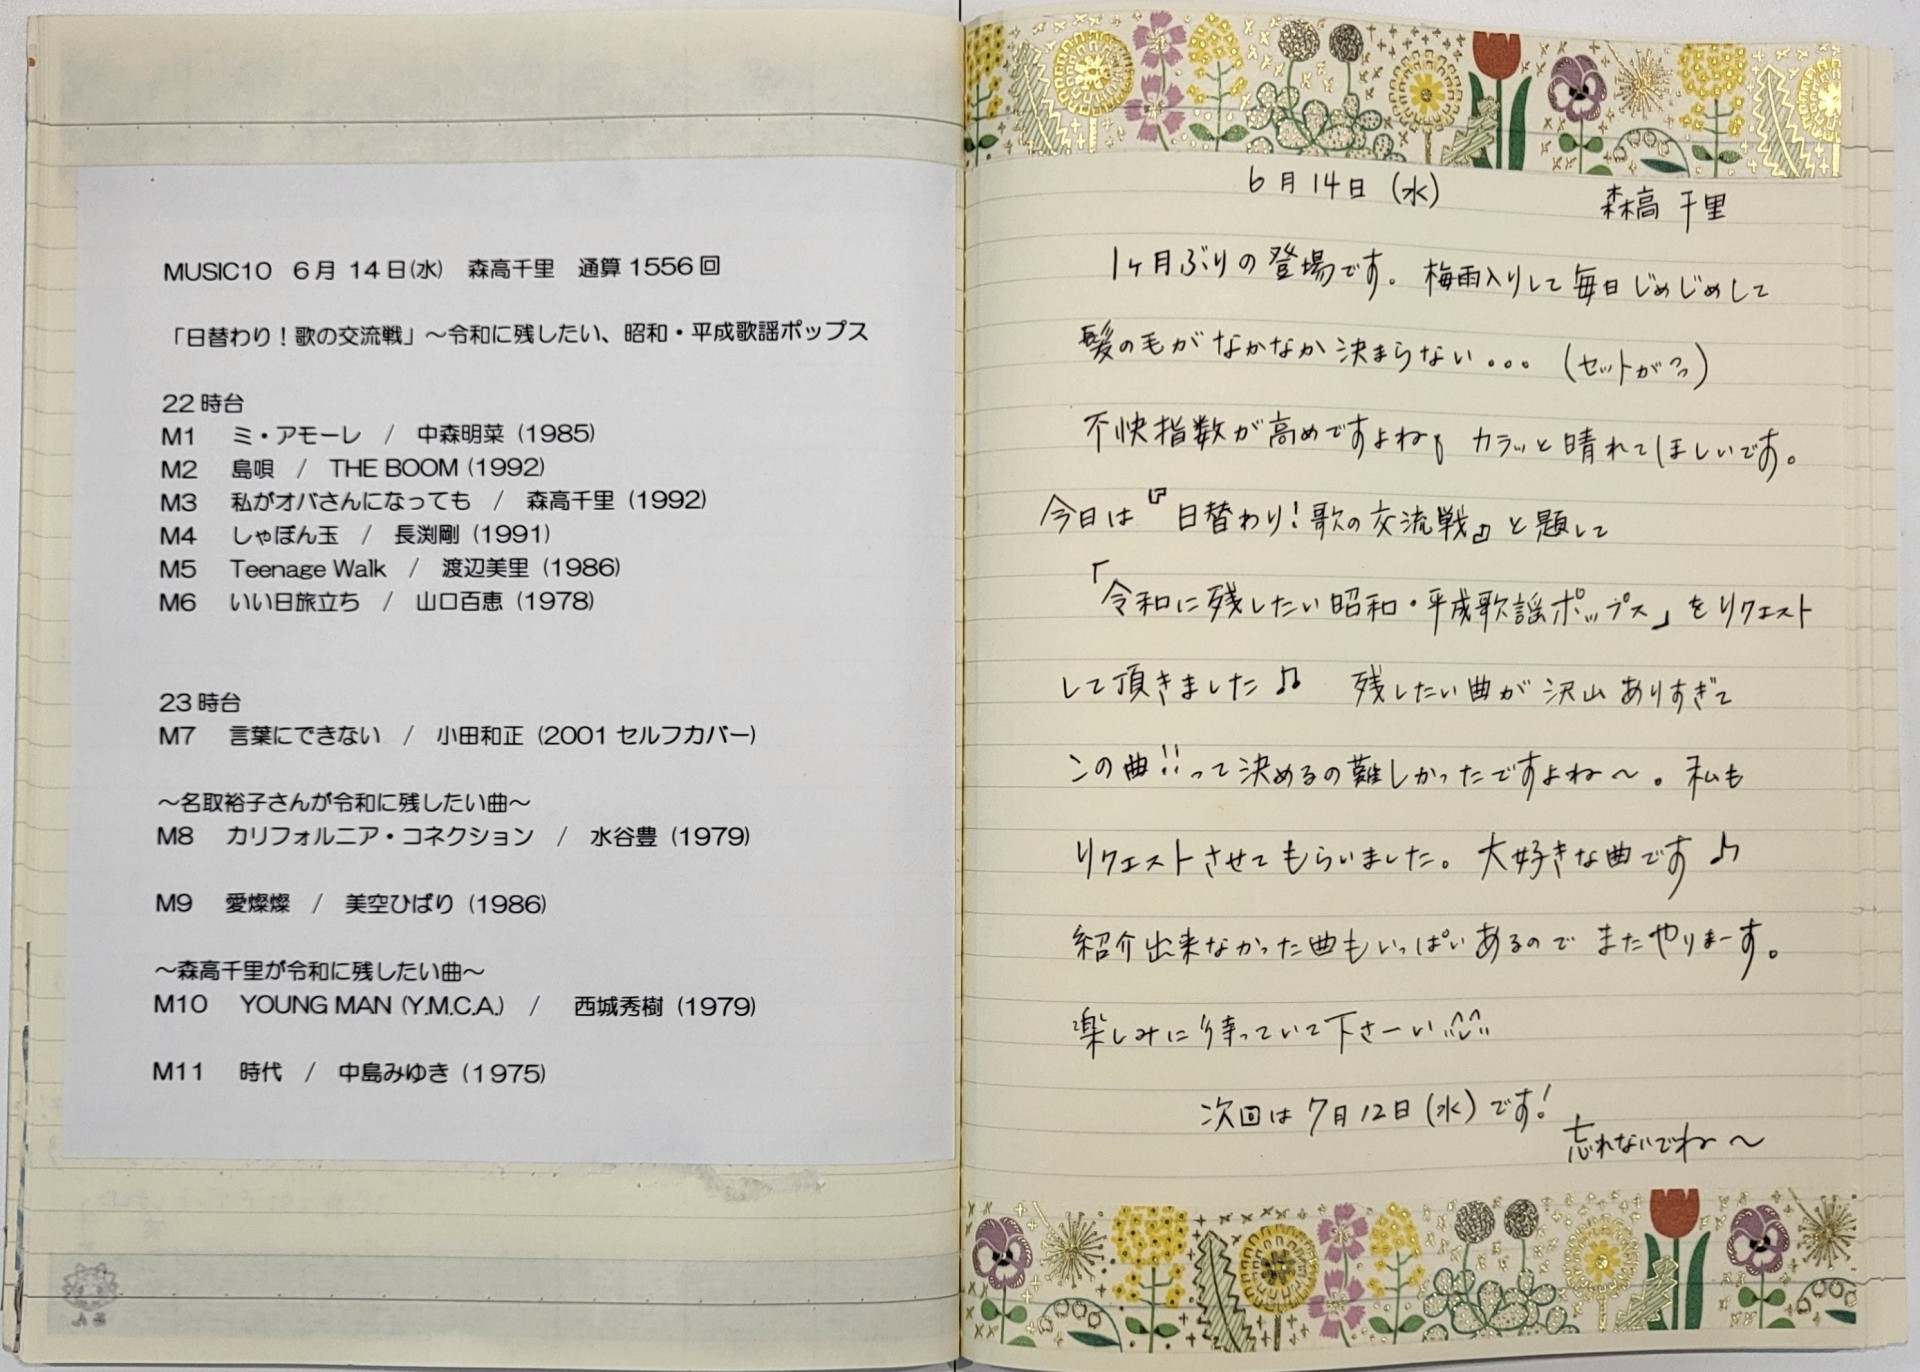 MUSIC10 6月 14日(水) 森高千里 通算 1556回
「日替わり!歌の交流戦」～令和に残したい、昭和・平成歌謡ポップス
22時台
M1 ミ・アモーレ / 中森明菜 (1985)
M2 島唄 / THE BOOM (1992)
M3 私がオバさんになっても / 森高千里 (1992)
M4 しゃぼん玉 / 長渕剛 (1991)
M5 Teenage Walk / 渡辺美里 (1986)
M6 いい日旅立ち / 山口百恵 (1978)
23時台
M7 言葉にできない / 小田和正 (2001 セルフカバー)
～名取裕子さんが令和に残したい曲～
M8 カリフォルニア・コネクション / 水谷豊 (1979)
M9 愛燦燦 / 美空ひばり (1986)
～森高千里が令和に残したい曲～
M10 YOUNG MAN (Y.M.C.A.) / 西城秀樹 (1979)
M11 時代 / 中島みゆき (1975)
6月14日 (水) 森高 千里
1ヶ月ぶりの登場です。梅雨入りして毎日じめじめして
髪の毛がなかなか決まらない... (セットがっっ)
不快指数が高めですよね カラッと晴れてほしいです。
今日は『日替わり!歌の交流戦』と題して
「令和に残したい昭和・平成歌謡ポップス」をリクエスト
して頂きました♫ 残したい曲が沢山ありすぎて
この曲!!って決めるの難しかったですよね～。私も
リクエストさせてもらいました。大好きな曲です♪
紹介出来なかった曲もいっぱいあるのでまたやりまーす。
楽しみに待っていて下さーい
次回は7月12日(水)です!
忘れないでね～